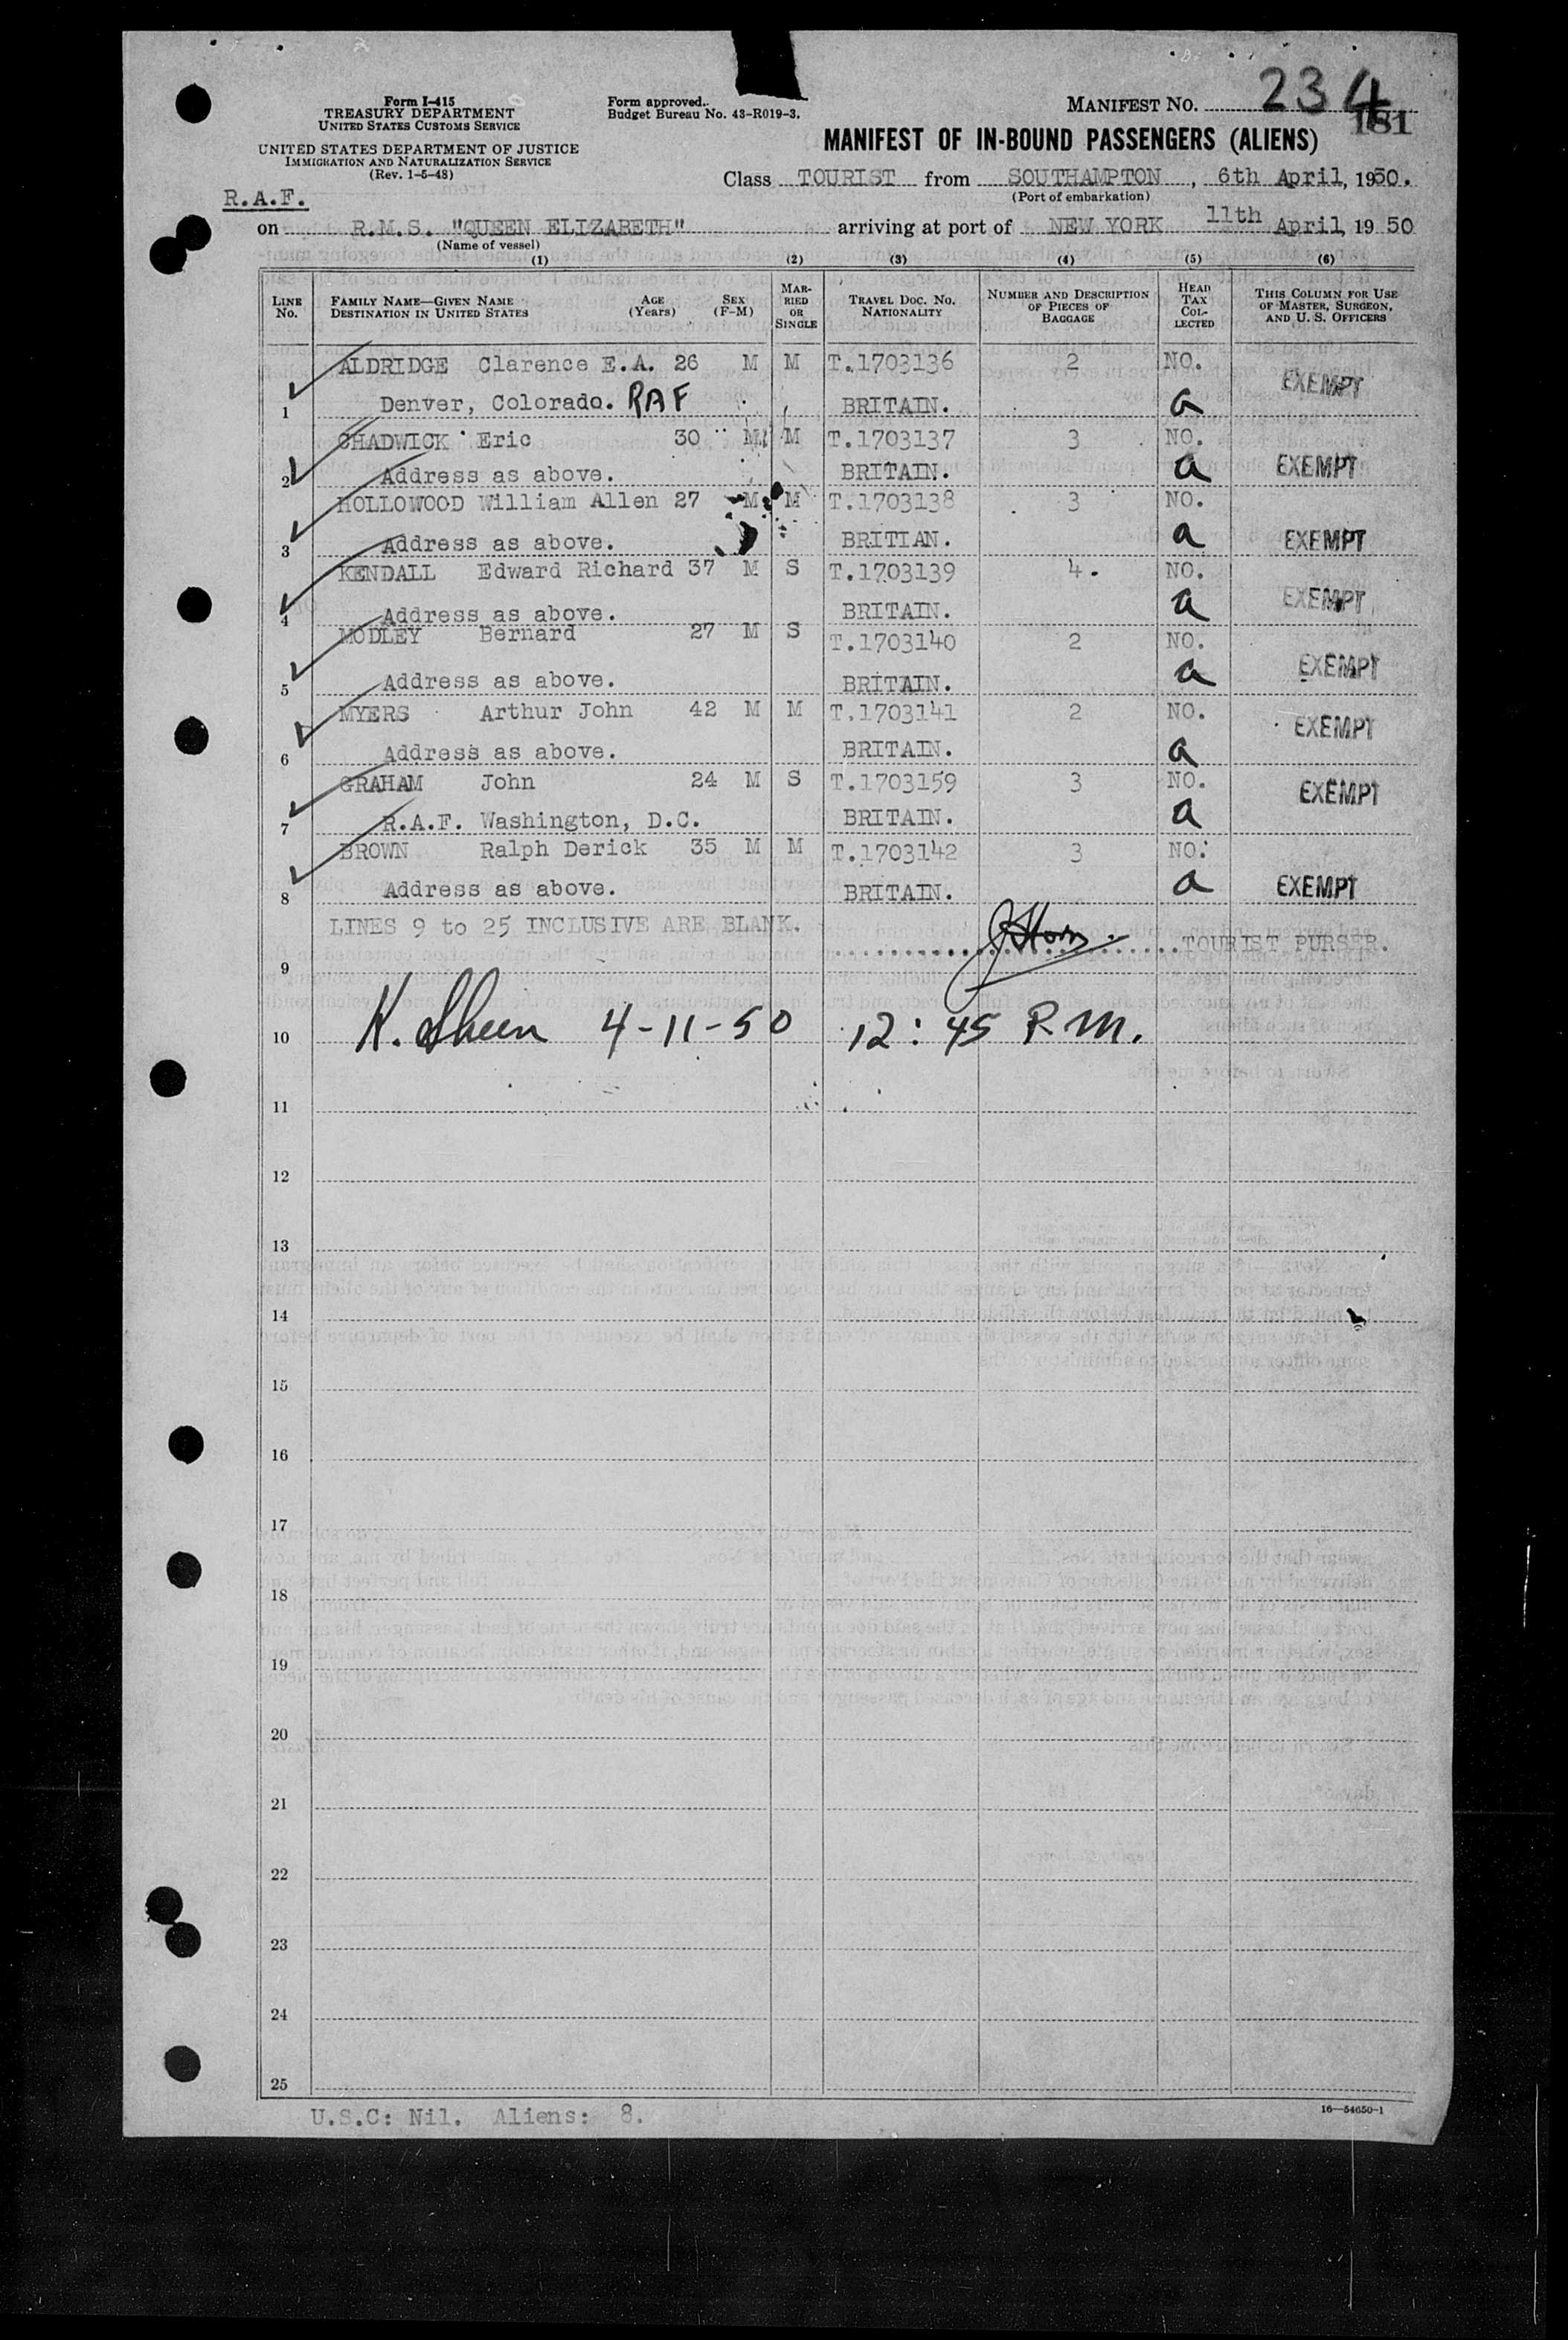 Form I-415
TREASURY DEPARTMENT
UNITED STATES CUSTOMS SERVICE
UNITED STATES DEPARTMENT OF JUSTICE
IMMIGRATION AND NATURALIZATION SERVICE
(Rev. 1-5-48)
Form approved.
Budget Bureau No. 43-R019-3.
MANIFEST NO. 234
181
MANIFEST OF IN-BOUND PASSENGERS (ALIENS)
Class TOURIST from SOUTHAMPTON, 6th April, 1950.
(Port of embarkation)
R.A.F.
on R.M.S. "QUEEN ELIZABETH" arriving at port of NEW YORK 11th April, 19 50
(Name of vessel)
(1) (2) (3) (4) (5) (6)
LINE No. FAMILY NAME—GIVEN NAME DESTINATION IN UNITED STATES AGE (Years) SEX (F-M) MARRIED OR SINGLE TRAVEL DOC. NO. NATIONALITY NUMBER AND DESCRIPTION OF PIECES OF BAGGAGE HEAD TAX COLLECTED THIS COLUMN FOR USE OF MASTER, SURGEON, AND U. S. OFFICERS
ALDRIDGE Clarence E.A. 26 M M T.1703136 2 NO. EXEMPT
1 Denver, Colorado. RAF BRITAIN. a
CHADWICK Eric 30 M M T.1703137 3 NO.
2 Address as above. BRITAIN. a EXEMPT
HOLLOWOOD William Allen 27 M M T.1703138 3 NO.
3 Address as above. BRITIAN. a EXEMPT
KENDALL Edward Richard 37 M S T.1703139 4. NO.
4 Address as above. BRITAIN. a EXEMPT
MODLEY Bernard 27 M S T.1703140 2 NO.
5 Address as above. BRITAIN. a EXEMPT
MYERS Arthur John 42 M M T.1703141 2 NO. EXEMPT
6 Address as above. BRITAIN. a
GRAHAM John 24 M S T.1703159 3 NO. EXEMPT
7 R.A.F. Washington, D.C. BRITAIN. a
BROWN Ralph Derick 35 M M T.1703142 3 NO.
8 Address as above. BRITAIN. a EXEMPT
LINES 9 to 25 INCLUSIVE ARE BLANK.
TOURIST PURSER.
9
10 K. Sheen 4-11-50 12:45 P.M.
11
12
13
14
15
16
17
18
19
20
21
22
23
24
25
U.S.C: Nil. Aliens: 8.
16—54650-1